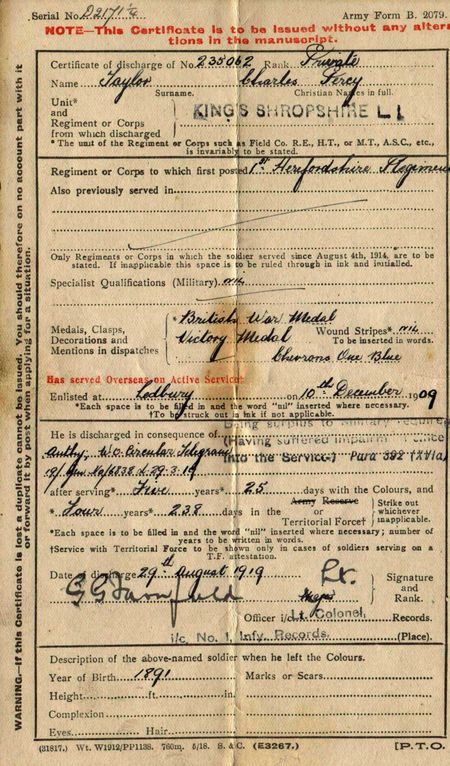 Serial No. D2171 1/4 Army Form B. 2079.
NOTE—This Certificate is to be issued without any altera-
tions in the manuscript.
Certificate of discharge of No. 235062 Rank Private
Name Taylor Charles Percy
Surname. Christian Names in full.
Unit*
and
Regiment or Corps
from which discharged
KING'S SHROPSHIRE L.I.
* The unit of the Regiment or Corps such as Field Co. R.E., H.T., or M.T., A.S.C., etc.,
is invariably to be stated.
Regiment or Corps to which first posted 1st Herefordshire Regiment
Also previously served in
Only Regiments or Corps in which the soldier served since August 4th, 1914, are to be
stated. If inapplicable this space is to be ruled through in ink and initialled.
Specialist Qualifications (Military) nil
Medals, Clasps,
Decorations and
Mentions in dispatches
British War Medal
Victory Medal
Wound Stripes* nil
To be inserted in words.
Chevrons One Blue
Has served Overseas on Active Service†
Enlisted at Ledbury on 10th December 1909
*Each space to be filled in and the word "nil" inserted where necessary.
†To be struck out in ink if not applicable.
He is discharged in consequence of Being surplus to Military require
(Having suffered impairm since
Authy. W.O. Circular Telegram into the Service.) Para 392 (XVIa)
after serving* Five years* 25 days with the Colours, and
* Four years* 238 days in the
Army Reserve
or
Territorial Force†
Strike out
whichever
inapplicable.
*Each space to be filled in and the word "nil" inserted where necessary; number of
years to be written in words.
†Service with Territorial Force to be shown only in cases of soldiers serving on a
T.F. attestation.
Date of discharge 29th August 1919
Lt.
Signature
and
Rank.
Officer i/c Lt. Colonel Records.
i/c No. 1, Infy. Records (Place).
Description of the above-named soldier when he left the Colours.
Year of Birth 1891 Marks or Scars
Height ft. in.
Complexion
Eyes Hair
(31817.) Wt. W1912/PP1138. 760m. 5/18. S. & C. (E3267.) [P.T.O.
WARNING—If this Certificate is lost a duplicate cannot be issued. You should therefore on no account part with it
or forward it by post when applying for a situation.